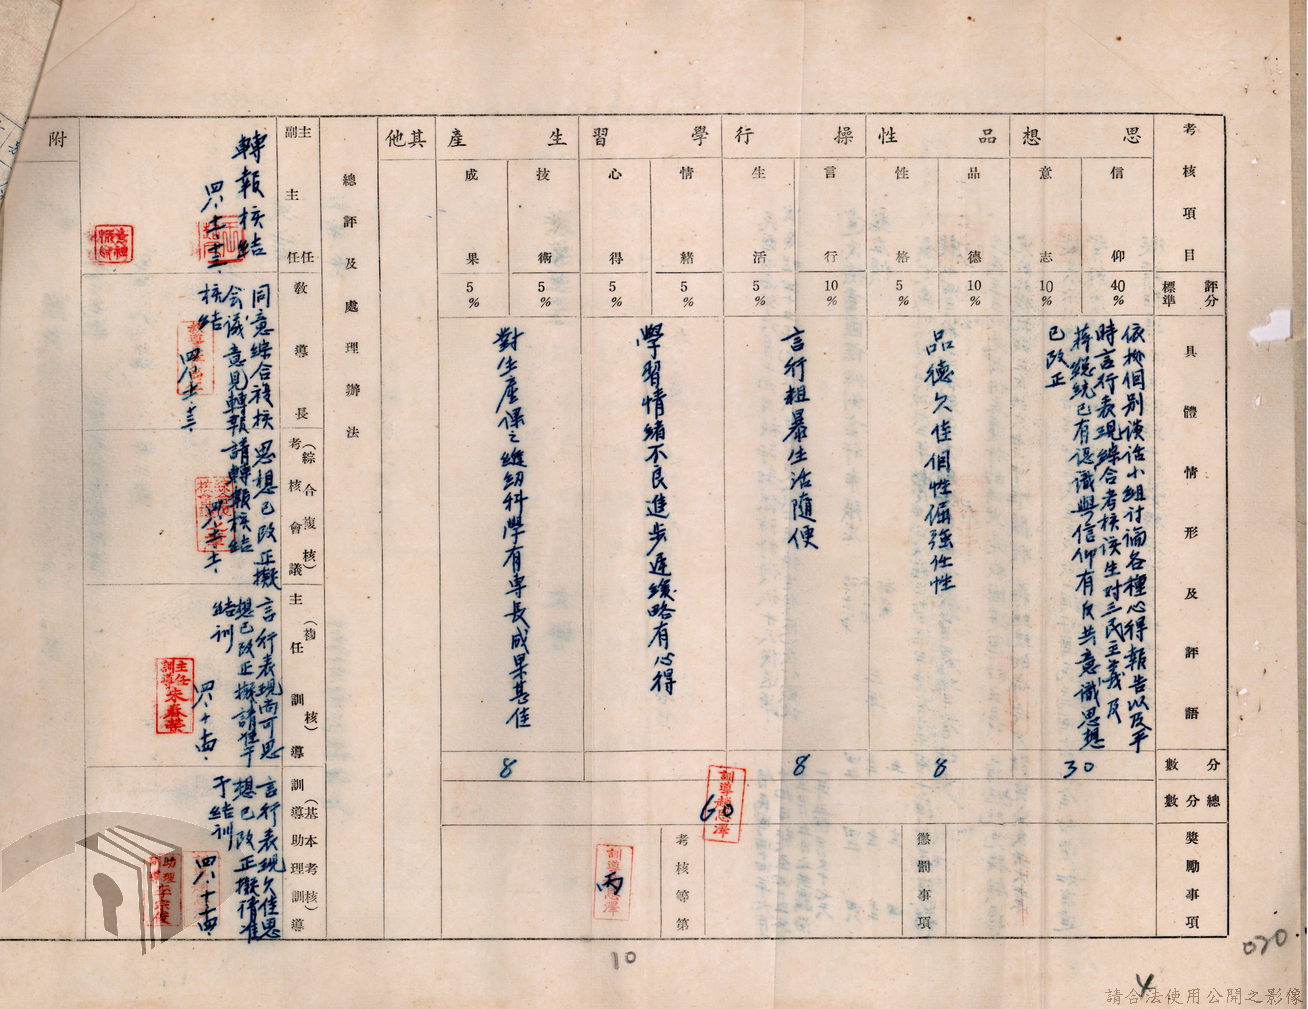 考核項目
評分標準
具體情形及評語
分數
總分數
獎勵事項
思想
信仰
40%
意志
10%
依按個別談話小組討論各種心得報告以及平
時言行表現綜合考核該生對三民主義及
蔣總統已有認識與信仰有反共意識思想
已改正
30
品性
品德
10%
性格
5%
品德欠佳個性倔強任性
8
操行
言行
10%
生活
5%
言行粗暴生活隨便
8
學習
情緒
5%
心得
5%
學習情緒不良進步遲緩略有心得
生產
技術
5%
成果
5%
對生產課之縫紉科學有專長成果甚佳
8
其他
60
懲罰事項
考核等第
丙
總評及處理辦法
主任
副主任
轉報核結
四八、十二、十三、
教導長
同意綜合複核
會議意見轉報
核結
(綜合複核)
考核會議
思想已改正擬
請轉報核結
(複核)
主任訓導
言行表現尚可思
想已改正擬請准予
結訓
四八、十、十四、
主任訓導 朱春榮
(基本考核)
訓導助理訓導
言行表現欠佳思
想已改正擬請准
予結訓
四八、十、十四、
附
10
020
4
請合法使用公開之影像